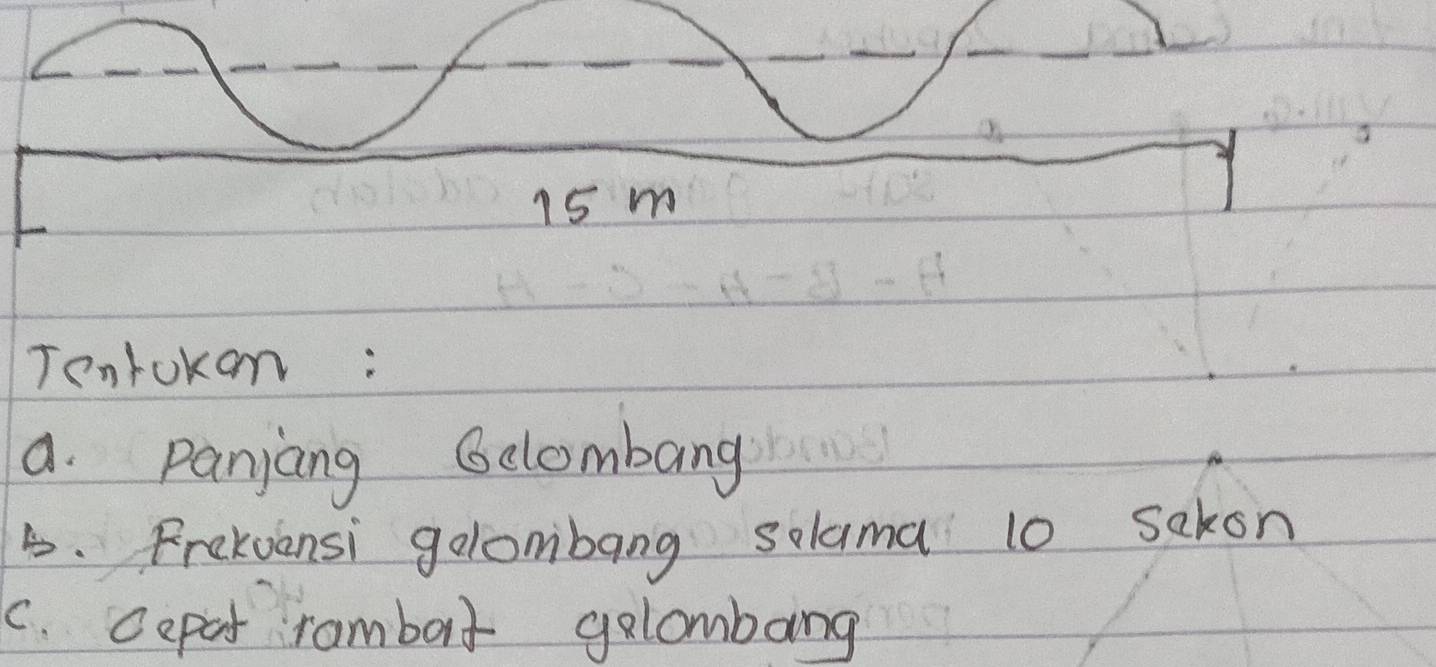 15 m
Tentukan :
a. Panjang Gelombang
b. Frekuensi gelombang selama 10 sekon
c. Cepat rambat gelombang